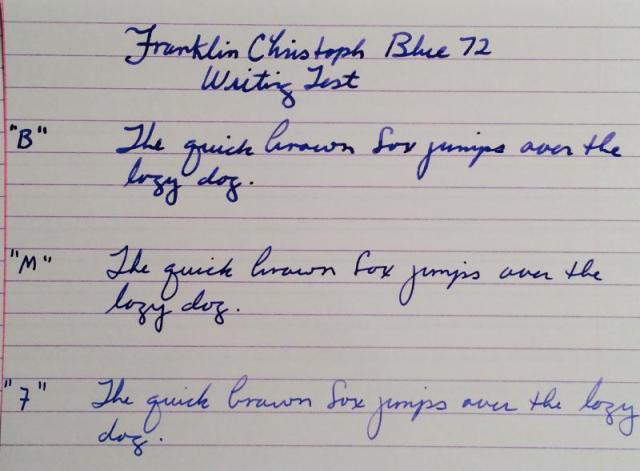 Franklin Christoph Blue 72
Writing Test
"B" The quick brown fox jumps over the
lazy dog.
"M" The quick brown fox jumps over the
lazy dog.
"7" The quick brown fox jumps over the lazy
dog.